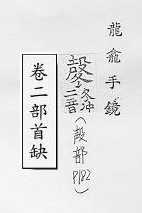 龍龕手鏡
謦
二音
(殸部
P182)
卷二部首缺